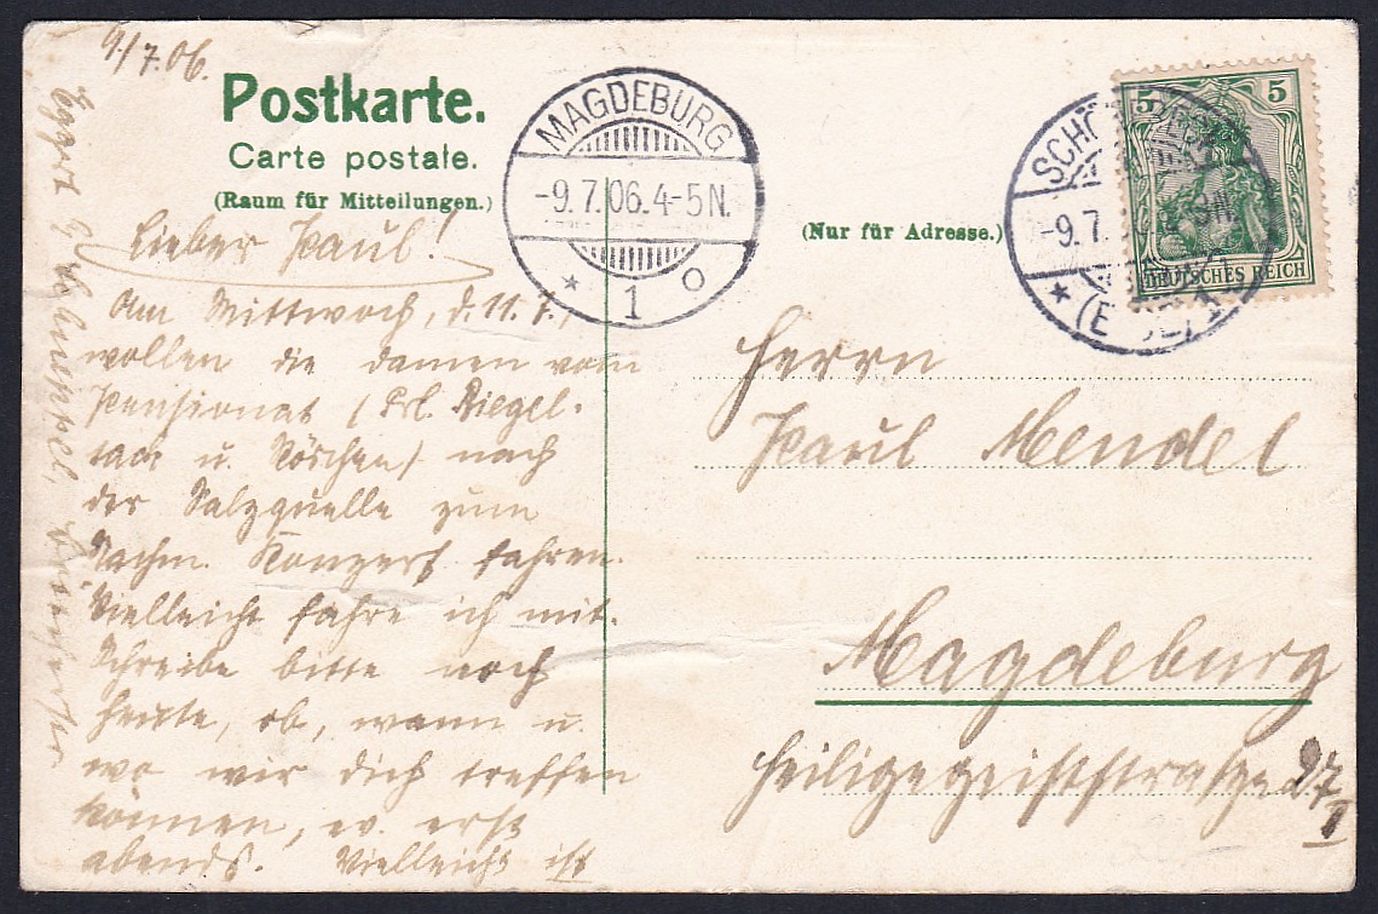 9./7.06.
Postkarte.
Carte postale.
(Raum für Mitteilungen.)
Lieber Paul!
Am Mittwoch, d. 11. 7.,
wollen die Damen vom
Pensionat (Frl. Riegel-
u. Röschen) nach
der Salzquelle zum
Nachm. Konzert fahren.
Vielleicht fahre ich mit.
Schreibe bitte noch
heute, ob, wann u.
wo wir dich treffen
können, ev. erst
abends. Vielleicht ist
MAGDEBURG
-9.7.06.4-5N.
* 1 o
(Nur für Adresse.)
SCH
-9.7. N.
* (E
5 5
DEUTSCHES REICH
Herrn
Paul Mendel
Magdeburg
Heiligegeiststraße 27 I